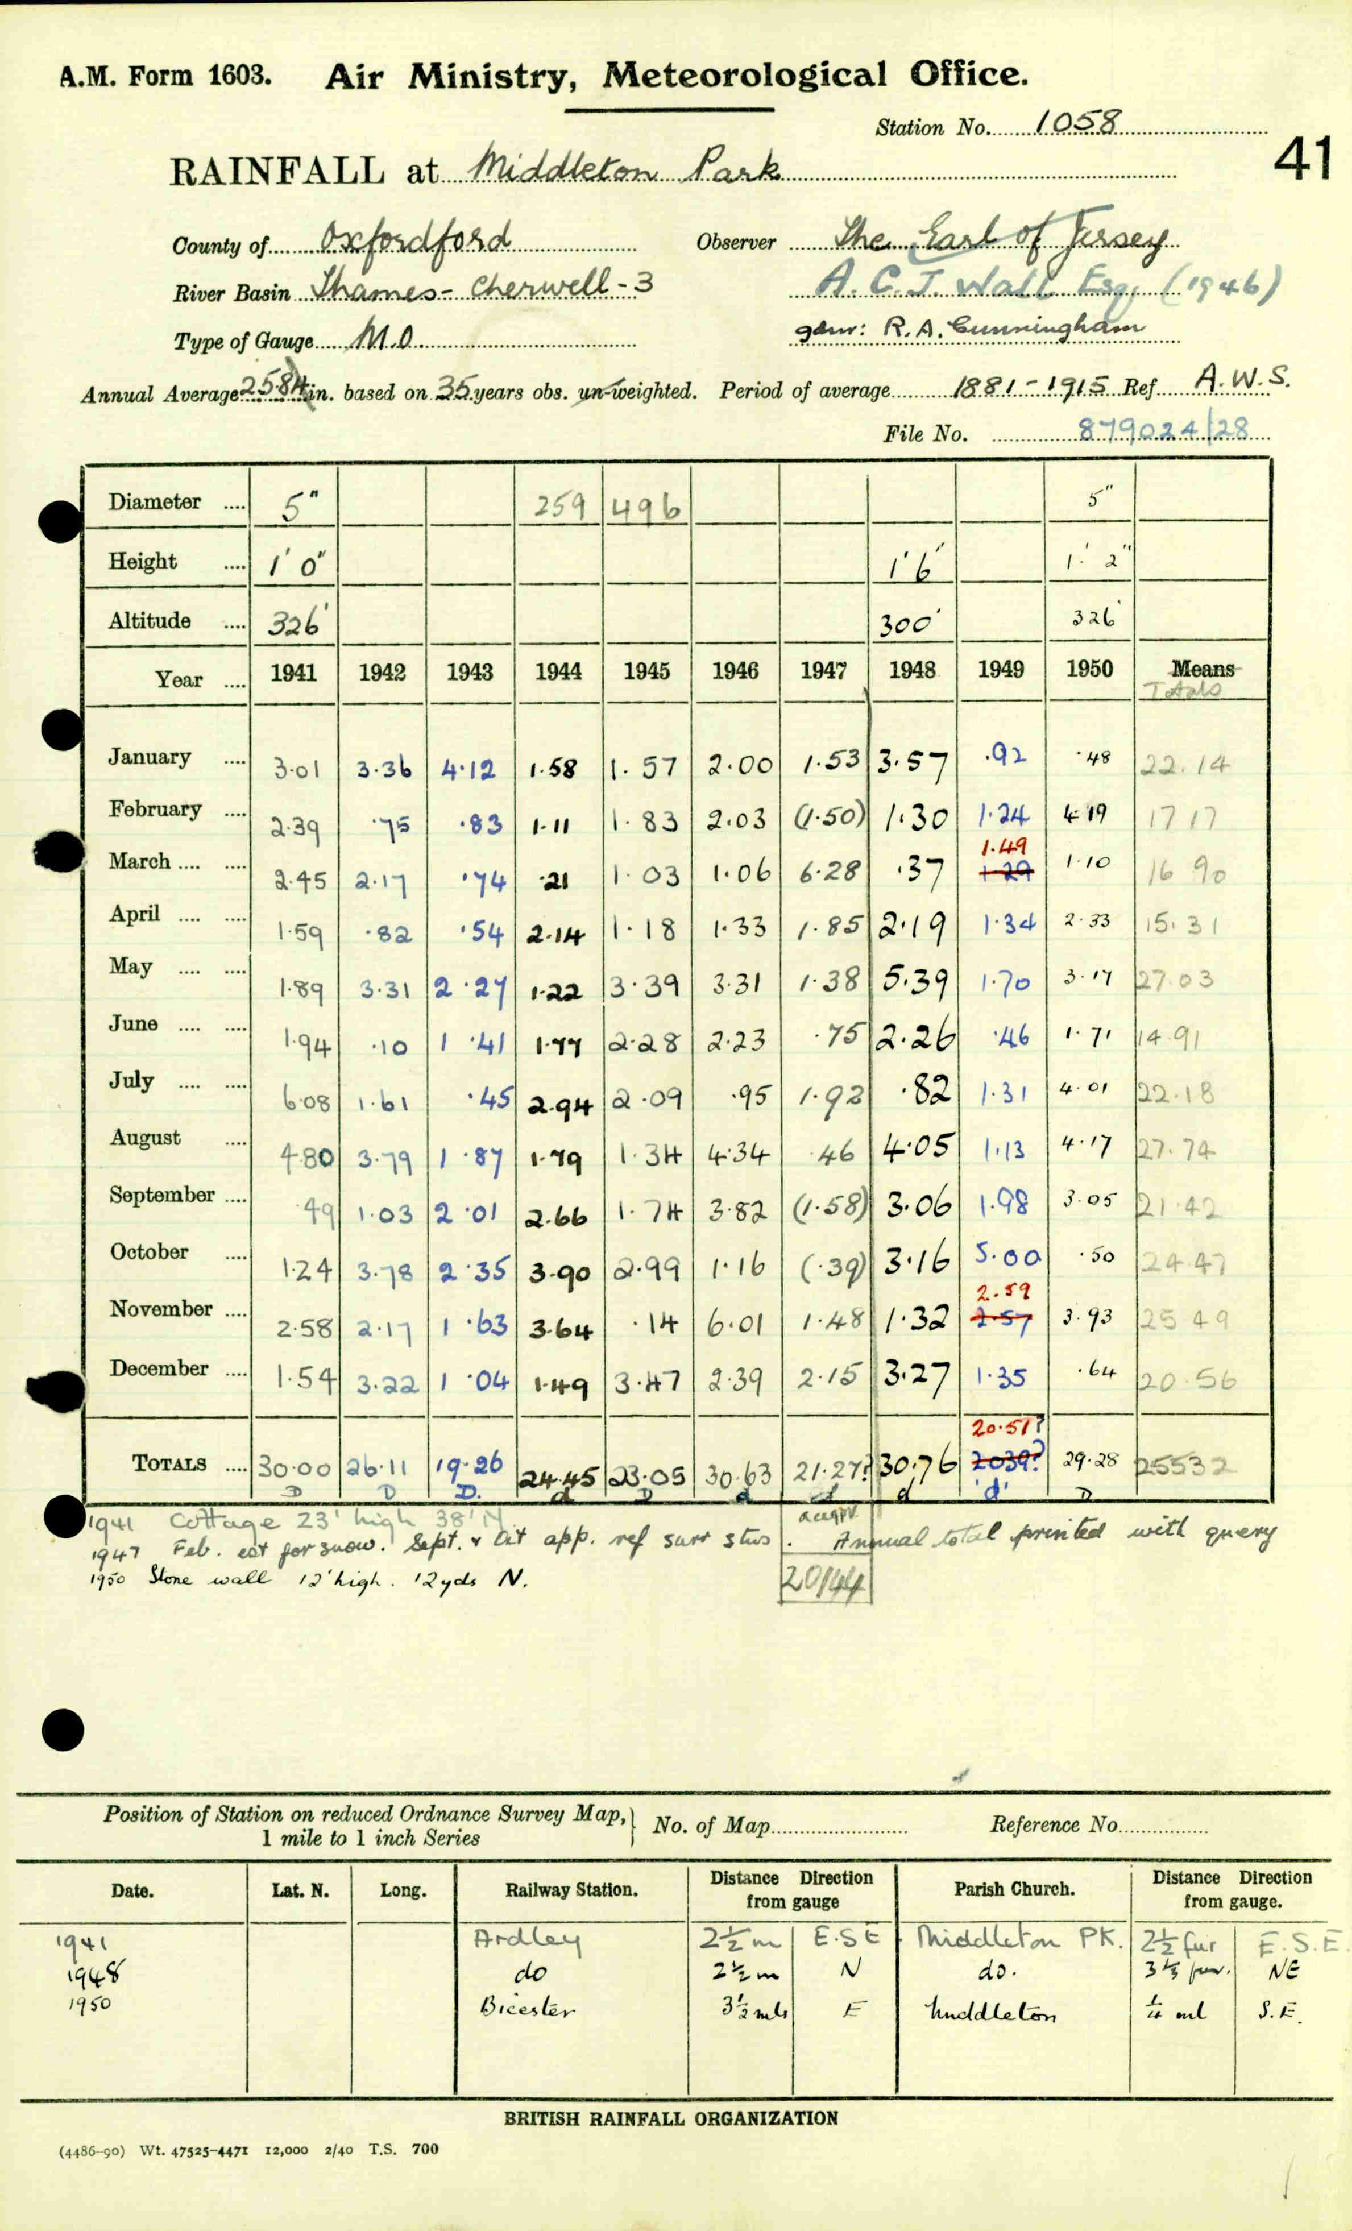 A.M. Form 1603. Air Ministry, Meteorological Office.
Station No. 1058
41
RAINFALL at Middleton Park
County of Oxfordford Observer The Earl of Jersey
River Basin Thames - Cherwell - 3 A. C. J. Wall Esq. (1946)
Type of Gauge M.O. gdnr: R. A. Cunningham
Annual Average 25.84 in. based on 35 years obs. un-weighted. Period of average 1881-1915 Ref A.W.S.
File No. 879024/28
Diameter .... 5" 259 496 5"
Height .... 1' 0" 1'6" 1' 2"
Altitude .... 326' 300' 326'
Year .... 1941 1942 1943 1944 1945 1946 1947 1948 1949 1950 Means
Totals
January .... 3.01 3.36 4.12 1.58 1.57 2.00 1.53 3.57 .92 .48 22.14
February .... 2.39 .75 .83 1.11 1.83 2.03 (1.50) 1.30 1.24 4.19 17 17
1.49
March .... .... 2.45 2.17 .74 .21 1.03 1.06 6.28 .37 1.29 1.10 16 90
April .... .... 1.59 .82 .54 2.14 1.18 1.33 1.85 2.19 1.34 2.33 15.31
May .... .... 1.89 3.31 2.27 1.22 3.39 3.31 1.38 5.39 1.70 3.17 27.03
June .... .... 1.94 .10 1.41 1.77 2.28 2.23 .75 2.26 .46 1.71 14.91
July .... .... 6.08 1.61 .45 2.94 2.09 .95 1.92 .82 1.31 4.01 22.18
August .... 4.80 3.79 1.87 1.79 1.34 4.34 .46 4.05 1.13 4.17 27.74
September .... .49 1.03 2.01 2.66 1.74 3.82 (1.58) 3.06 1.98 3.05 21.42
October .... 1.24 3.78 2.35 3.90 2.99 1.16 (.39) 3.16 5.00 .50 24.47
2.59
November .... 2.58 2.17 1.63 3.64 .14 6.01 1.48 1.32 2.57 3.93 25 49
December .... 1.54 3.22 1.04 1.49 3.47 2.39 2.15 3.27 1.35 .64 20.56
20.51?
TOTALS .... 30.00 26.11 19.26 24.45 23.05 30.63 21.27? 30.76 2039? 29.28 25532
D D D. d D d d d 'd' D
1941 Cottage 23' high 38' N
1947 Feb. est for snow. Sept. & Oct app. ref surr stns. Annual total printed with query
1950 Stone wall 12' high. 12 yds N.
20144
Position of Station on reduced Ordnance Survey Map, 1 mile to 1 inch Series No. of Map Reference No.
Date. Lat. N. Long. Railway Station. Distance from gauge Direction Parish Church. Distance from gauge. Direction
1941 Ardley 2½ m E.S.E Middleton PK. 2½ fur E.S.E.
1948 do 2½ m N do. 3⅓ fur. NE
1950 Bicester 3½ mls E Middleton ¼ ml S.E.
BRITISH RAINFALL ORGANIZATION
(4486-90) Wt. 47525-4471 12,000 2/40 T.S. 700